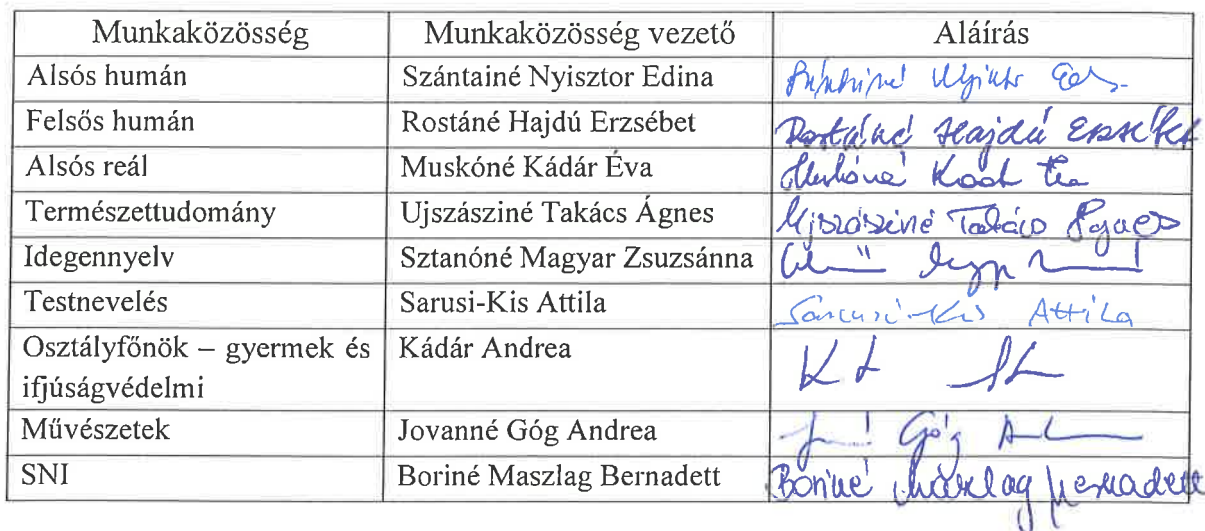 Munkaközösség Munkaközösség vezető Aláírás
Alsós humán Szántainé Nyisztor Edina
Felsős humán Rostáné Hajdú Erzsébet Rostáné Hajdú Erzsébet
Alsós reál Muskóné Kádár Éva Muskóné
Természettudomány Ujszásziné Takács Ágnes Ujszásziné Takács Ágnes
Idegennyelv Sztanóné Magyar Zsuzsánna
Testnevelés Sarusi-Kis Attila Sarusi-Kis Attila
Osztályfőnök – gyermek és Kádár Andrea
ifjúságvédelmi
Művészetek Jovanné Góg Andrea Góg
SNI Boriné Maszlag Bernadett Boriné Maszlag Bernadett